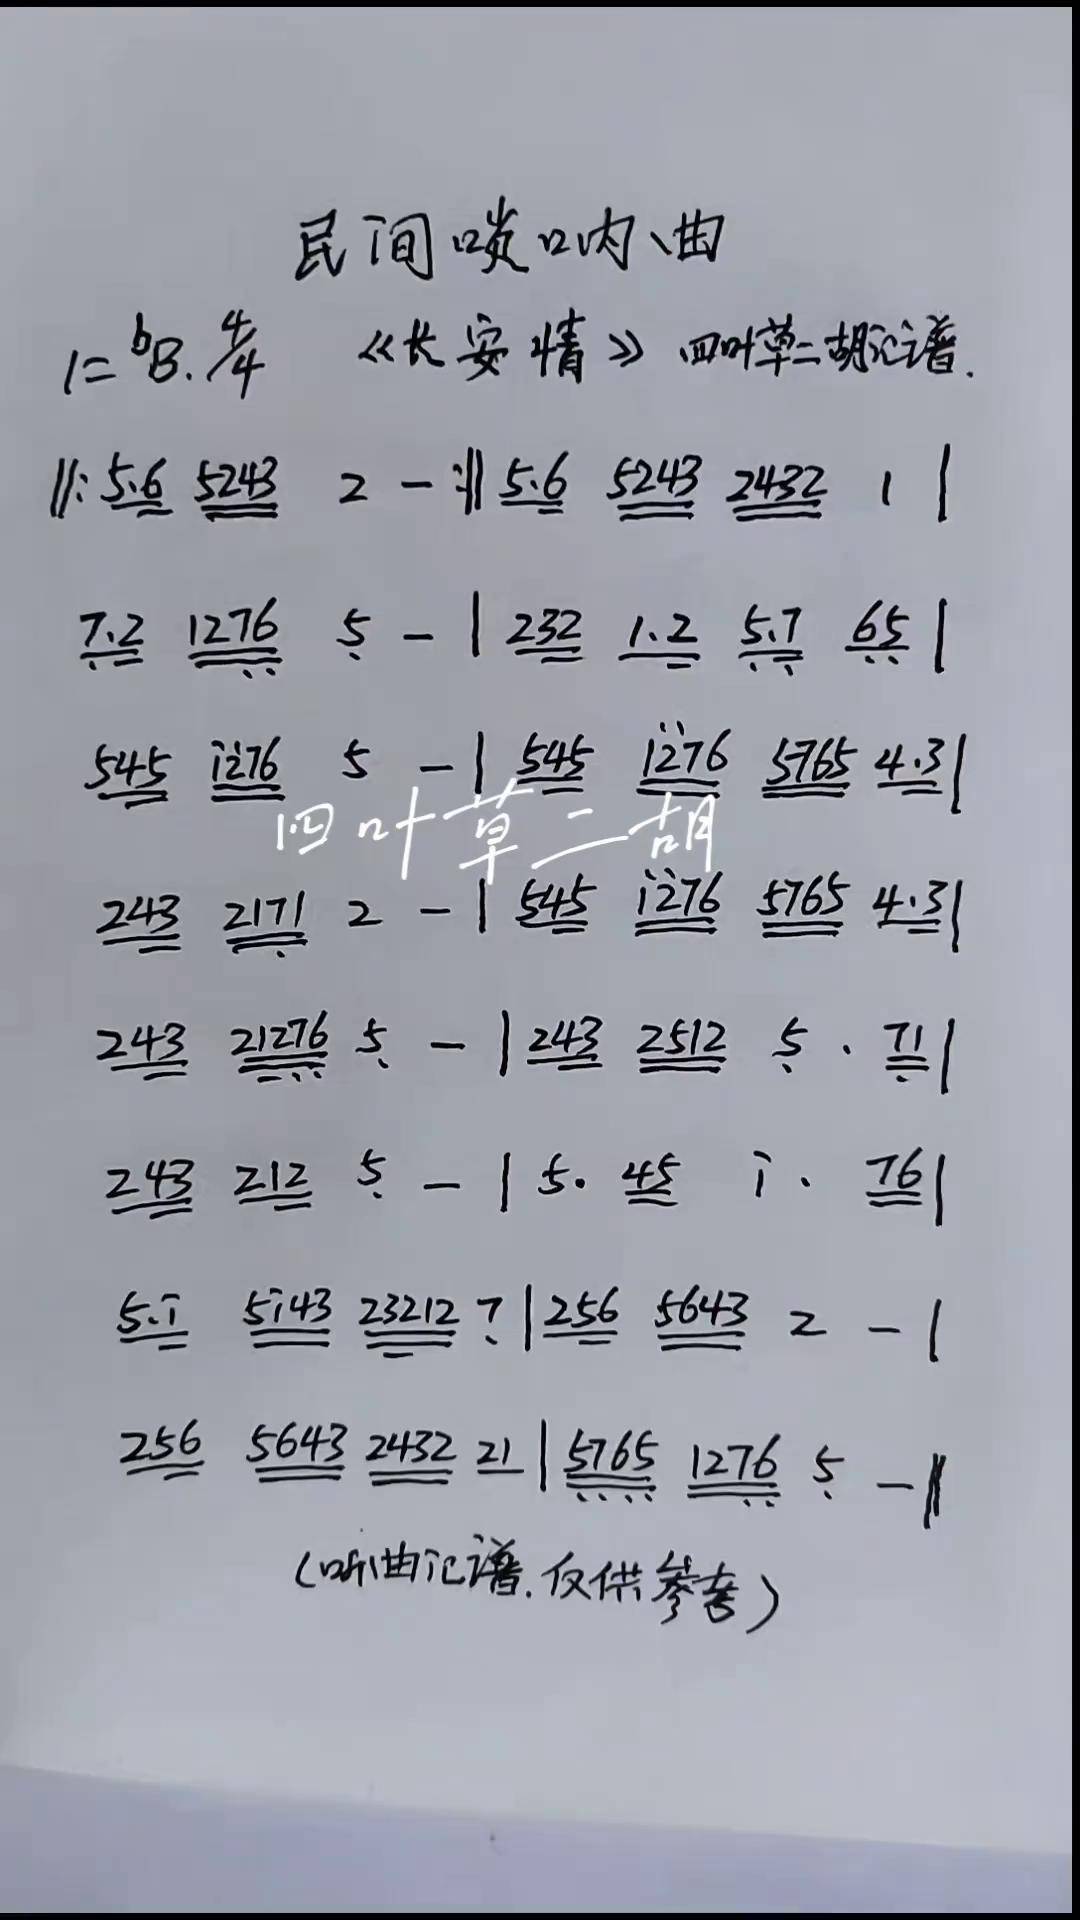 民间唢呐曲
1=ᵇB. 4/4 《长安情》 四叶草二胡记谱.
‖: 5.6 5243 2 - :‖ 5.6 5243 2432 1 |
7.2 1276 5 - | 232 1.2 5.7 65 |
545 i276 5 - | 545 1276 5765 4.3 |
四叶草二胡
243 2171 2 - | 545 i276 5765 4.3 |
243 21276 5 - | 243 2512 5 . 71 |
243 212 5 - | 5. 45 i . 76 |
5.i 5i43 23212 7 | 256 5643 2 - |
256 5643 2432 21 | 5765 1276 5 - ‖
(听曲记谱.仅供参考)